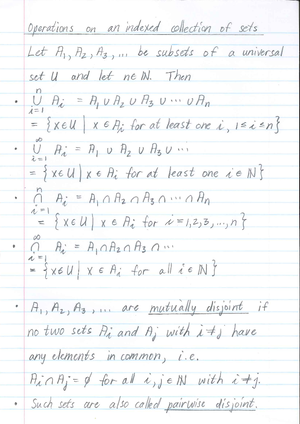 Operations on an indexed collection of sets
Let A₁, A₂, A₃, ... be subsets of a universal
set U and let n∈ℕ. Then
• ⋃ᵢ₌₁ⁿ Aᵢ = A₁ ∪ A₂ ∪ A₃ ∪ ⋯ ∪ Aₙ
= {x∈U | x∈Aᵢ for at least one i, 1≤i≤n}
• ⋃ᵢ₌₁^∞ Aᵢ = A₁ ∪ A₂ ∪ A₃ ∪ ⋯
= {x∈U | x∈Aᵢ for at least one i∈ℕ}
• ⋂ᵢ₌₁ⁿ Aᵢ = A₁ ∩ A₂ ∩ A₃ ∩ ⋯ ∩ Aₙ
= {x∈U | x∈Aᵢ for i=1,2,3,...,n}
• ⋂ᵢ₌₁^∞ Aᵢ = A₁ ∩ A₂ ∩ A₃ ∩ ⋯
= {x∈U | x∈Aᵢ for all i∈ℕ}
• A₁, A₂, A₃, ... are mutually disjoint if
no two sets Aᵢ and Aⱼ with i≠j have
any elements in common, i.e.
Aᵢ ∩ Aⱼ = ∅ for all i,j∈ℕ with i≠j.
• Such sets are also called pairwise disjoint.